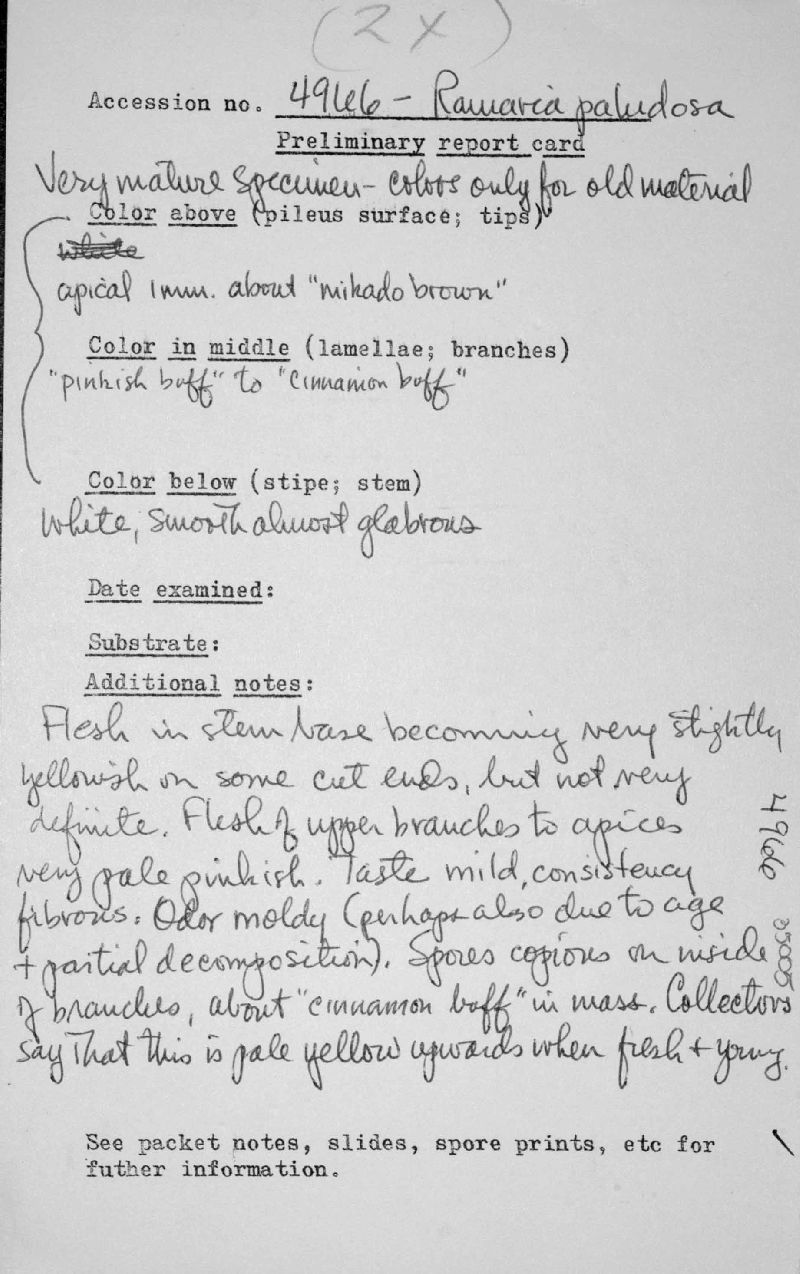 (2X)
Accession no. 4966 - Ramaria paludosa
Preliminary report card
Very mature specimen - colors only for old material
Color above (pileus surface; tips)
white
apical 1 mm. about "mikado brown"
Color in middle (lamellae; branches)
"pinkish buff" to "cinnamon buff"
Color below (stipe; stem)
White, smooth almost glabrous
Date examined:
Substrate:
Additional notes:
Flesh in stem base becoming very slightly
yellowish on some cut ends, but not very
definite. Flesh of upper branches to apices
very pale pinkish. Taste mild, consistency
fibrous. Odor moldy (perhaps also due to age
+ partial decomposition). Spores copious on inside
of branches, about "cinnamon buff" in mass. Collectors
say that this is pale yellow upwards when fresh + young.
4966
See packet notes, slides, spore prints, etc for
futher information.